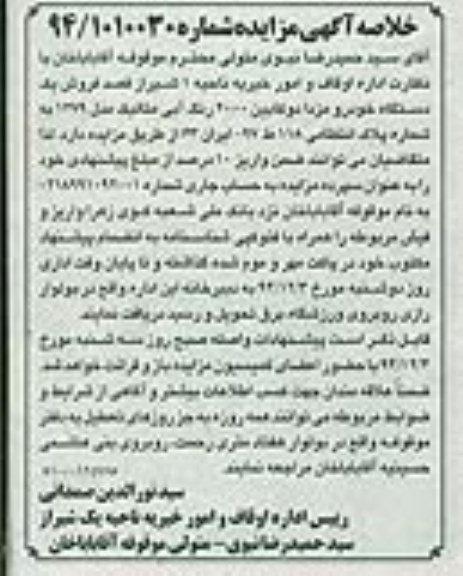 خلاصه آگهی مزایده شماره ۹۴/۱۰۱۰۰۳۰
آقای سید حمیدرضا نبوی متولی محترم موقوفه آقاباباخان با
نظارت اداره اوقاف و امور خیریه ناحیه ۱ شیراز قصد فروش یک
دستگاه خودرو مزدا دوکابین ۲۰۰۰ رنگ آبی متالیک مدل ۱۳۷۹ به
شماره پلاک انتظامی ۱۱۸ ط ۹۷- ایران ۶۳ از طریق مزایده دارد. لذا
متقاضیان می توانند ضمن واریز ۱۰ درصد از مبلغ پیشنهادی خود
را به عنوان سپرده مزایده به حساب جاری شماره
به نام موقوفه آقاباباخان نزد بانک ملی شعبه کوی زهرا واریز و
فیش مربوطه را همراه با فتوکپی شناسنامه به انضمام پیشنهاد
مکتوب خود در پاکت مهر و موم شده گذاشته و تا پایان وقت اداری
روز دوشنبه مورخ به دبیرخانه این اداره واقع در بولوار
رازی روبروی ورزشگاه برق تحویل و رسید دریافت نمایند.
قابل ذکر است پیشنهادات واصله صبح روز سه شنبه مورخ
با حضور اعضای کمیسیون مزایده باز و قرائت خواهد شد.
ضمناً علاقه مندان جهت کسب اطلاعات بیشتر و آگاهی از شرایط و
ضوابط مربوطه می توانند همه روزه به جز روزهای تعطیل به دفتر
موقوفه واقع در بولوار هفتاد متری رحمت، روبروی بنی هاشمی
حسینیه آقاباباخان مراجعه نمایند.
سید نورالدین صمدانی
رییس اداره اوقاف و امور خیریه ناحیه یک شیراز
سید حمیدرضا نبوی - متولی موقوفه آقاباباخان